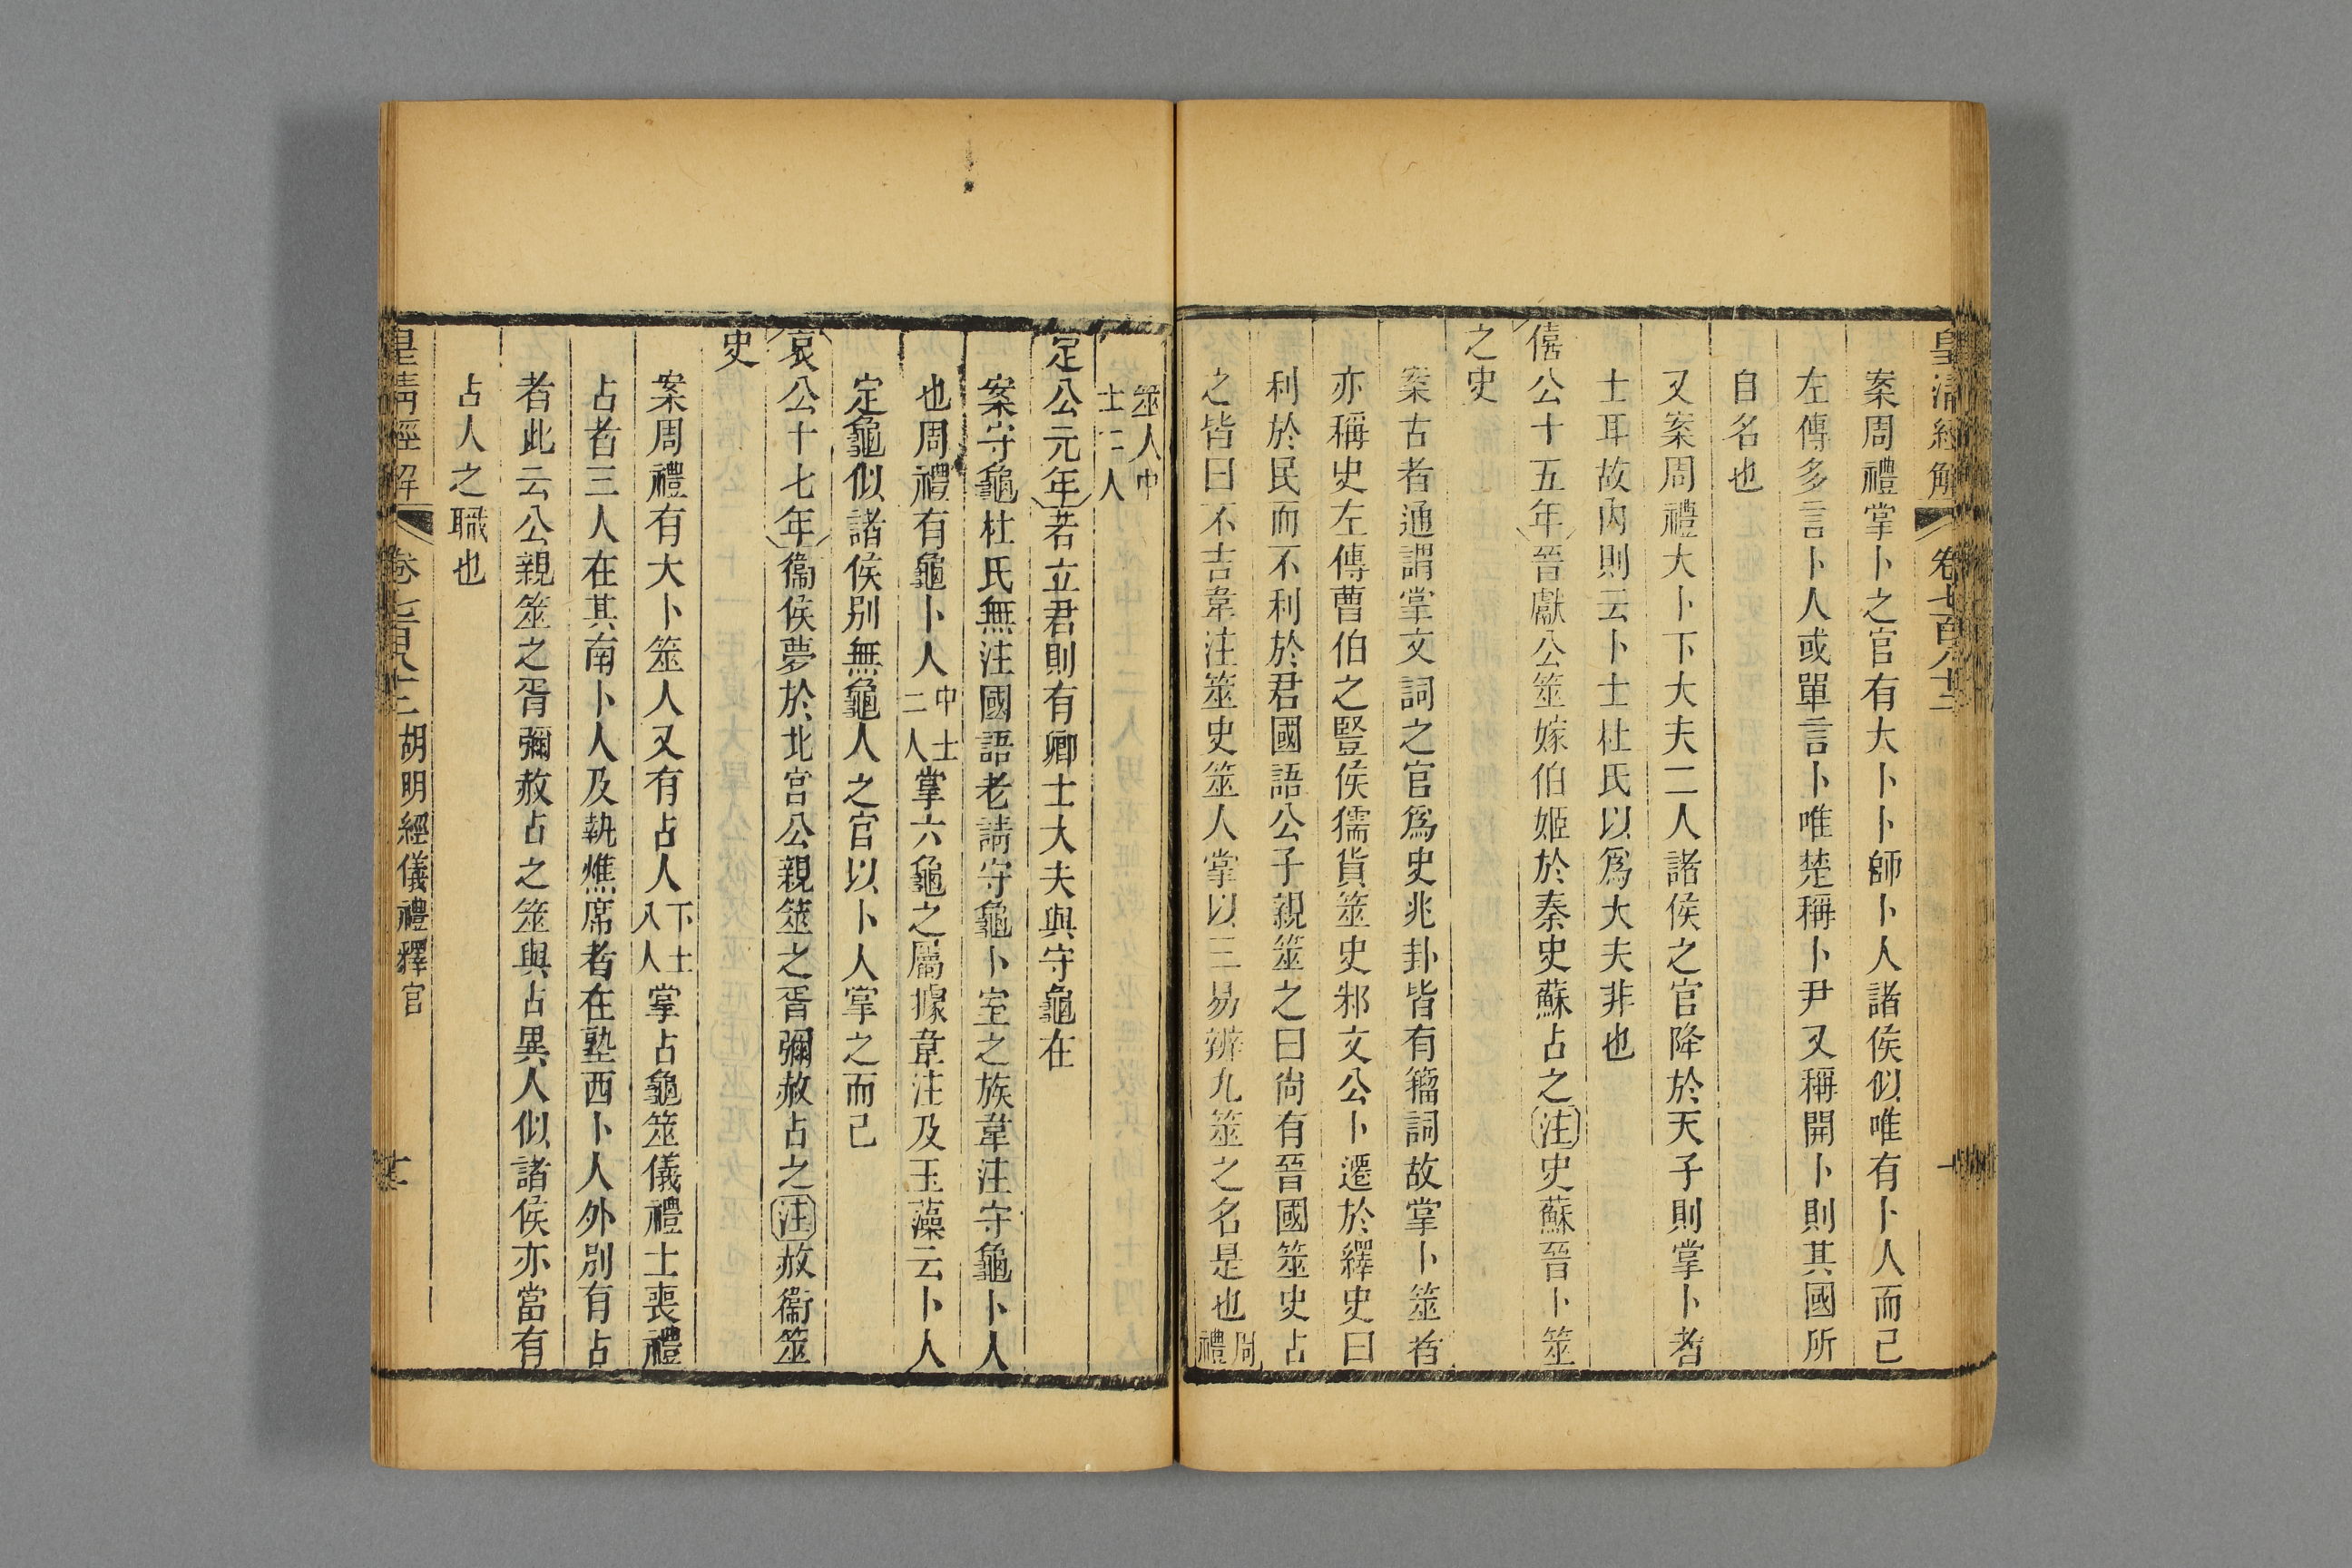 皇清經解 卷七百八十三
案周禮掌卜之官有大卜卜師卜人諸侯似唯有卜人而已
左傳多言卜人或單言卜唯楚稱卜尹又稱開卜則其國所
自名也
又案周禮大卜下大夫二人諸侯之官降於天子則掌卜者
士耳故內則云卜士杜氏以爲大夫非也
僖公十五年晉獻公筮嫁伯姬於秦史蘇占之注史蘇晉卜筮
之史
案古者通謂掌文詞之官爲史兆卦皆有籀詞故掌卜筮者
亦稱史左傳曹伯之豎侯獳貨筮史邾文公卜遷於繹史曰
利於民而不利於君國語公子親筮之曰尚有晉國筮史占
之皆曰不吉韋注筮史筮人掌以三易辨九筮之名是也周禮
筮人中士二人
定公元年若立君則有卿士大夫與守龜在
案守龜杜氏無注國語老請守龜卜室之族韋注守龜卜人
也周禮有龜卜人中士二人掌六龜之屬據韋注及玉藻云卜人
定龜似諸侯別無龜人之官以卜人掌之而已
哀公十七年衞侯夢於北宮公親筮之胥彌赦占之注赦衞筮
史
案周禮有大卜筮人又有占人下士八人掌占龜筮儀禮士喪禮
占者三人在其南卜人及執燋席者在塾西卜人外別有占
者此云公親筮之胥彌赦占之筮與占異人似諸侯亦當有
占人之職也
皇清經解 卷七百八十三 胡明經儀禮釋官